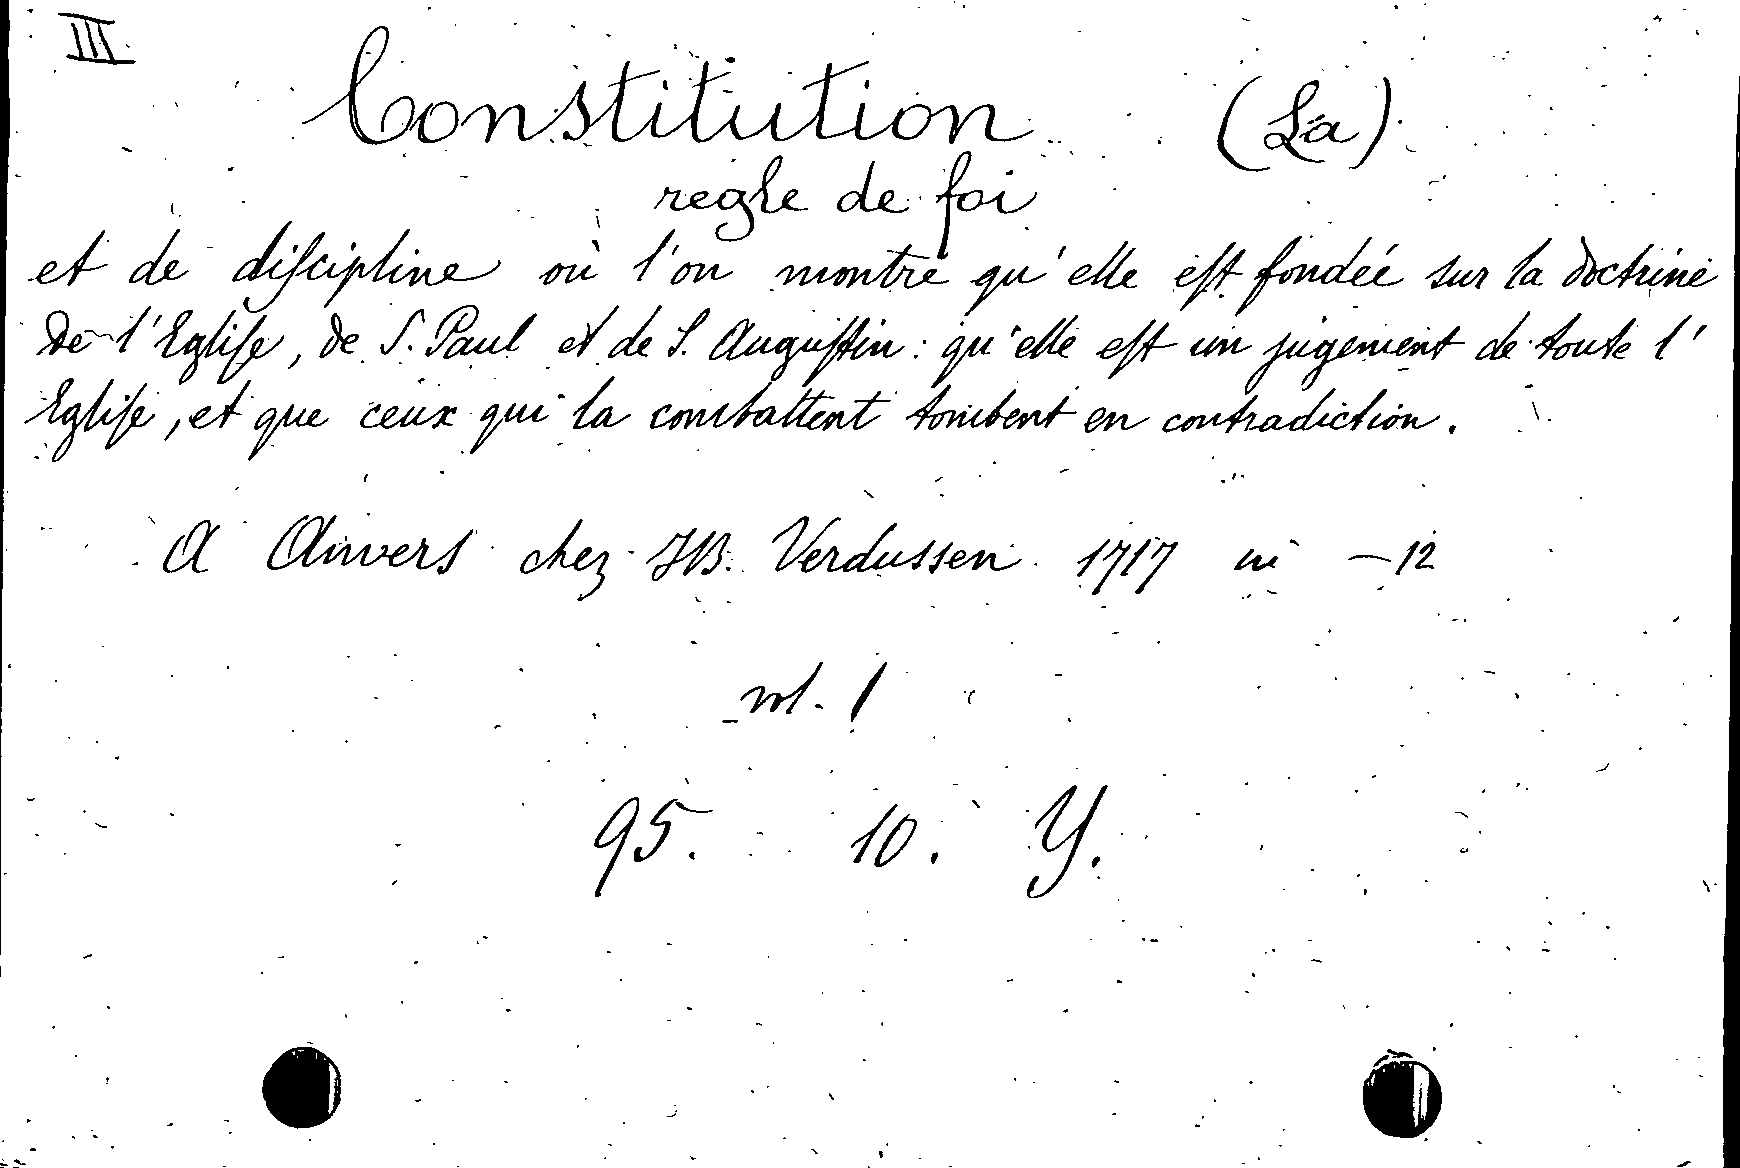 III
Constitution (La)
regle de foi
et de diſcipline où l'on montre qu'elle eſt fondée sur la doctrine
de l'Egliſe, de S. Paul et de S. Auguſtin : qu'elle eſt un jugement de toute l'
Egliſe, et que ceux qui la combattent tombent en contradiction.
A Anvers chez JB. Verdussen 1717 in -12
vol. 1
95. 10. Y.